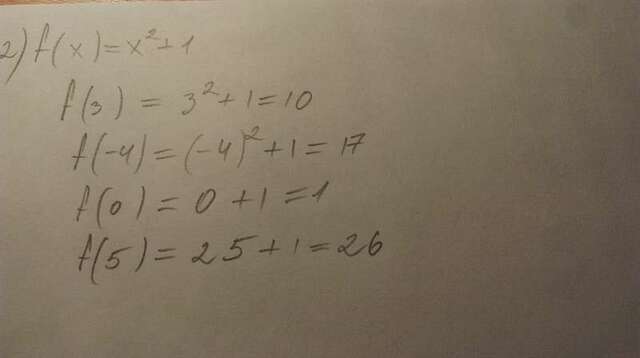 2) f(x)=x²+1
f(3) = 3²+1=10
f(-4)=(-4)²+1=17
f(0)=0+1=1
f(5)=25+1=26